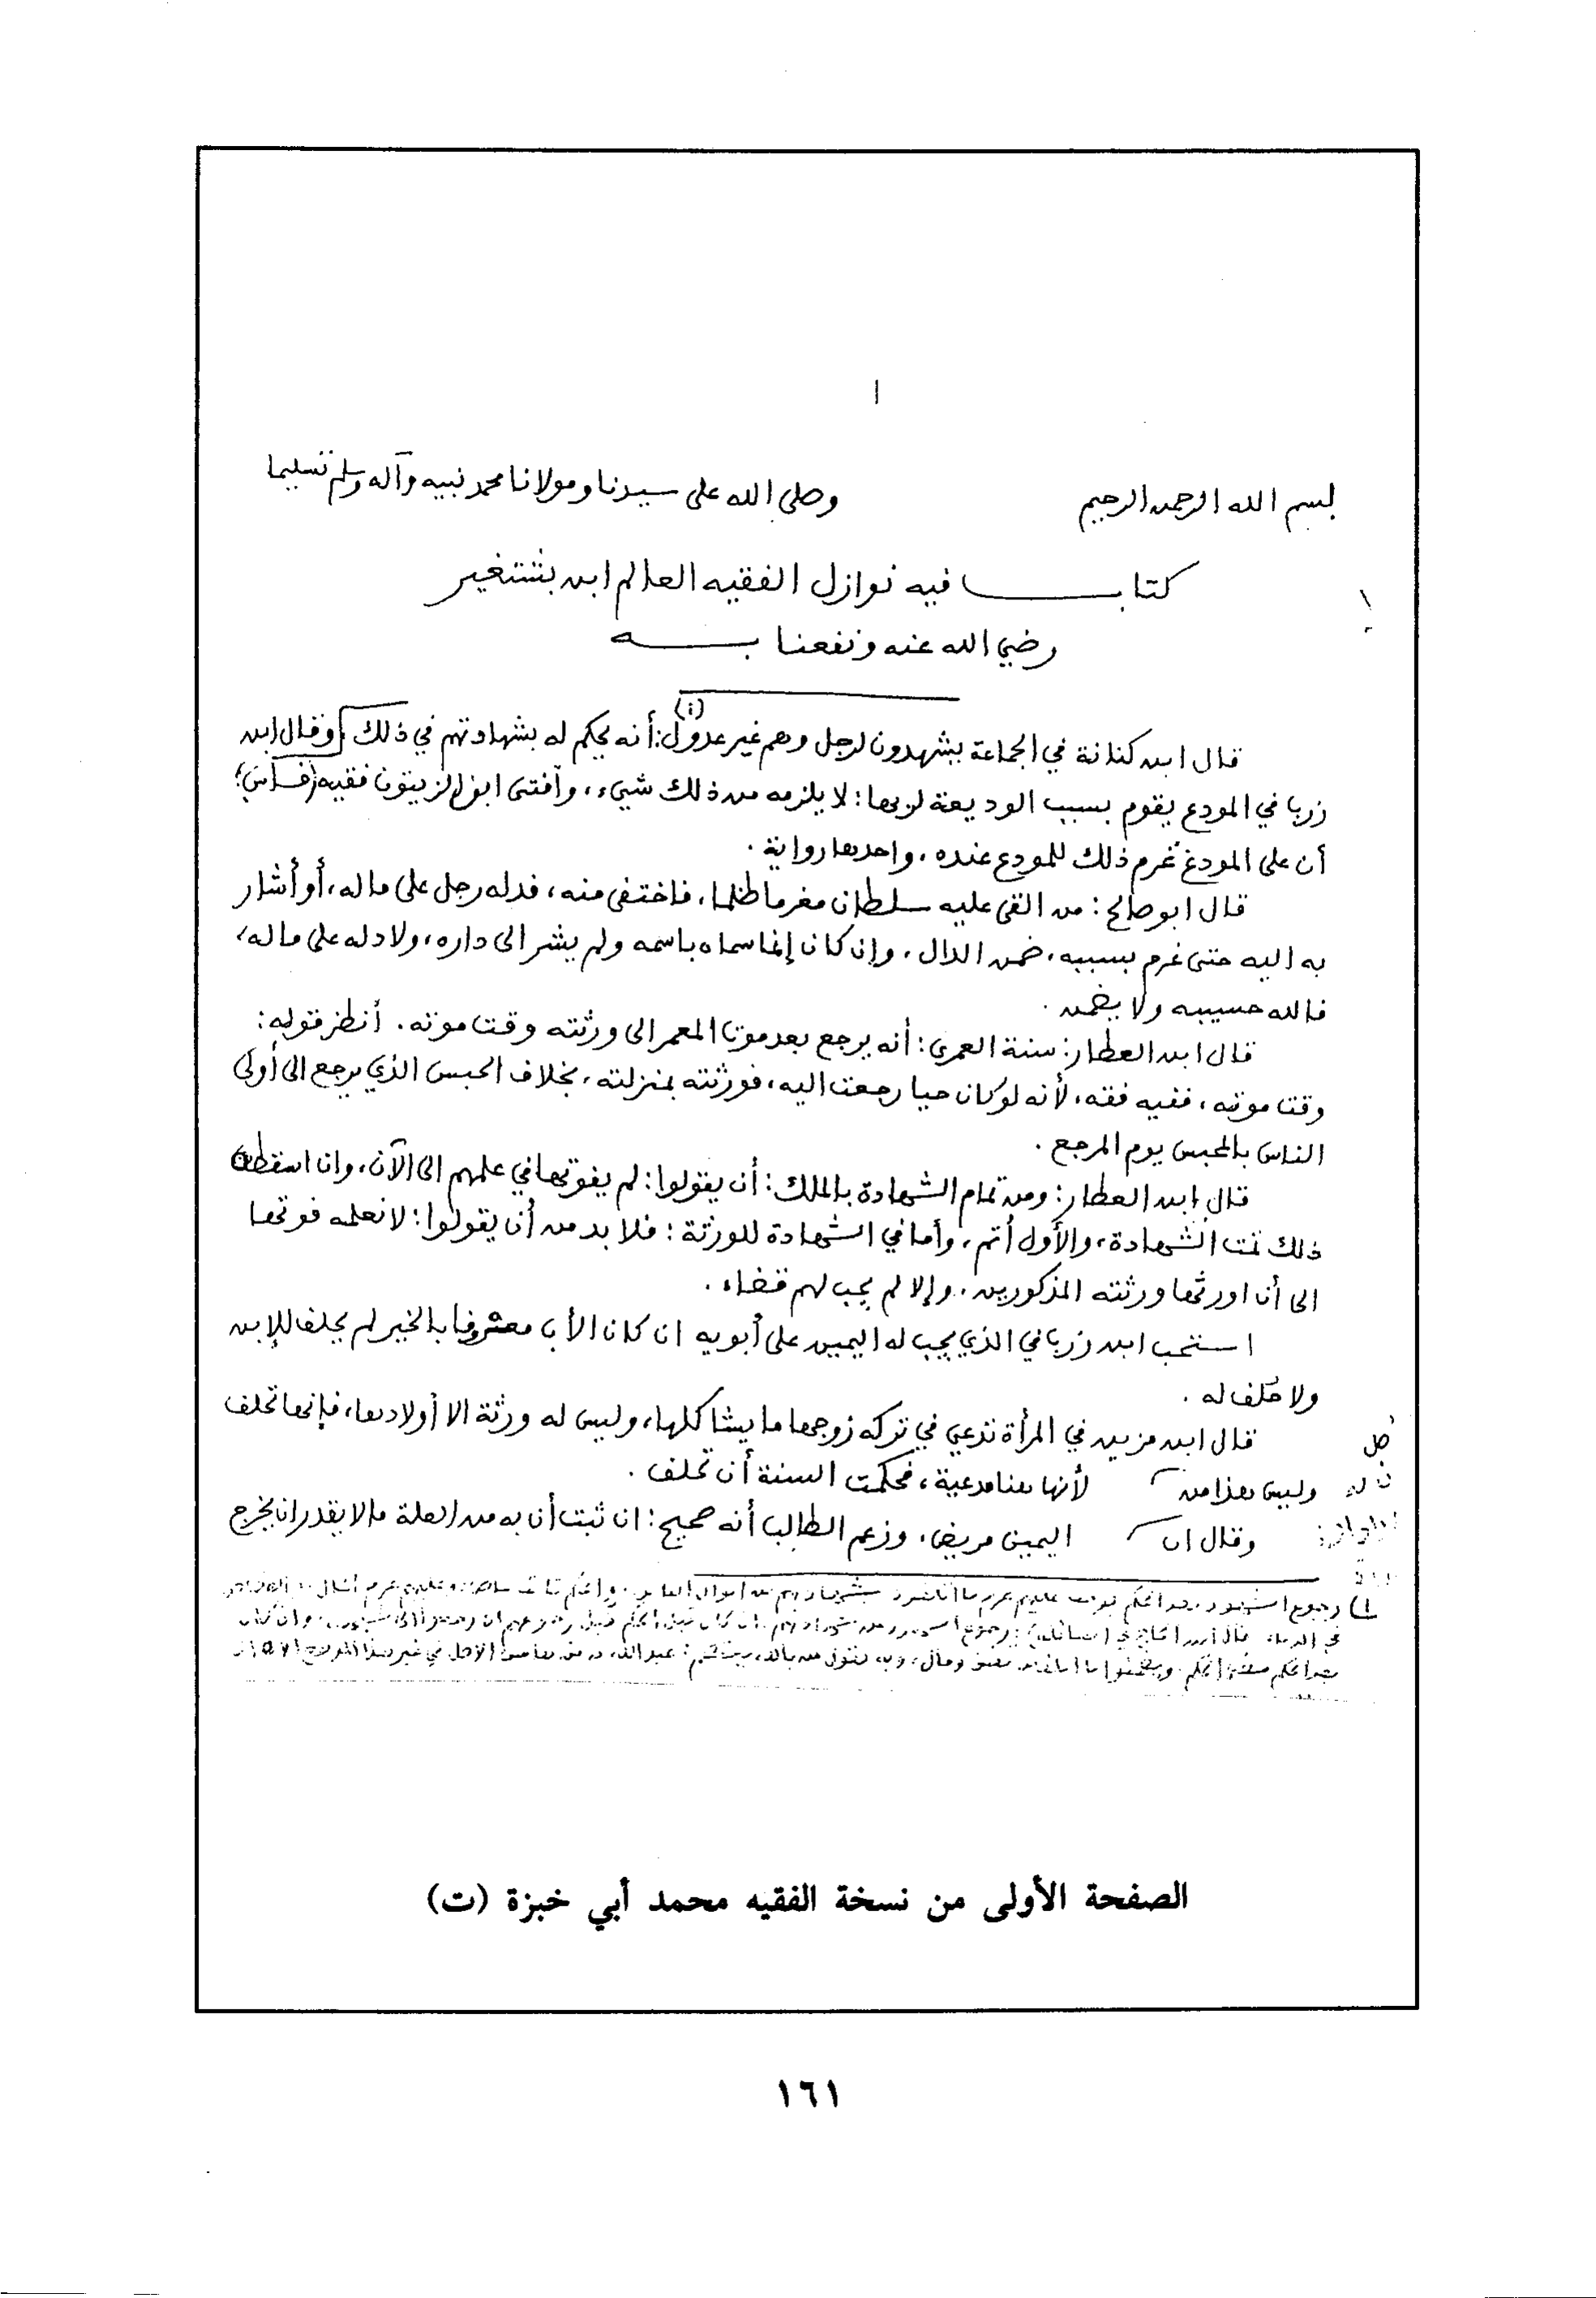 ١
بسم الله الرحمن الرحيم وصلى الله على سيدنا ومولانا محمد نبيه وآله وسلم تسليما
كتاب فيه نوازل الفقيه العالم ابن بشتغير
رضي الله عنه ونفعنا به
قال ابن كنانة في الجماعة يشهدون لرجل وهم غير عدول: (1) أنه يحكم له بشهادتهم في ذلك. وقال ابن
زرب في المودع يقوم بسبب الوديعة لربها: لا يلزمه من ذلك شيء، وأفتى ابن الزيتون فقيه (فاس)؛
أن على المودع غرم ذلك للمودع عنده، واحدها رواية.
قال ابو صالح: من القى عليه سلطان مغرما ظلما، فاختفى منه، فدله رجل على ماله، أو أشار
به اليه حتى غرم بسببه، ضمن الدال، وإن كان إنما سماه باسمه ولم يشر الى داره، ولا دله على ماله،
فالله حسيبه ولا يضمن.
قال ابن العطار: سنة العمرى: أنه يرجع بعد موت المعمر الى ورثته وقت موته. أنظر قوله:
وقت موته، ففيه فقه، لأنه لو كان حيا رجعت اليه، فورثته بمنزلته، بخلاف الحبس الذي يرجع الى أولى
الناس بالمحبس يوم المرجع.
قال ابن العطار: ومن تمام الشهادة بالملك: أن يقولوا: لم يفوتها في علمهم الى الآن، وان اسقطوا
ذلك تمت الشهادة، والأول أتم، وأما في الشهادة للورثة: فلا بد من أن يقولوا: لا نعلمه فوتها
الى أن اورثها ورثته المذكورين، وإلا لم يجب لهم قضاء.
استحب ابن زرب في الذي يجب له اليمين على أبويه ان كان الأب معروفا بالخير لم يحلف للإبن
ولا مكلف له.
قال ابن مزين في المرأة تدعي في تركة زوجها ما يشاكلها، وليس له ورثة الا أولادها، فإنها تحلف
وليس هذا من لأنها هنا مدعية، فحكمت السنة أن تحلف.
وقال ان اليمين مريض، وزعم الطالب أنه صحيح: ان ثبت أن به من العلة ما لا يقدر ان يخرج
الصفحة الأولى من نسخة الفقيه محمد أبي خبزة (ت)
١٦١